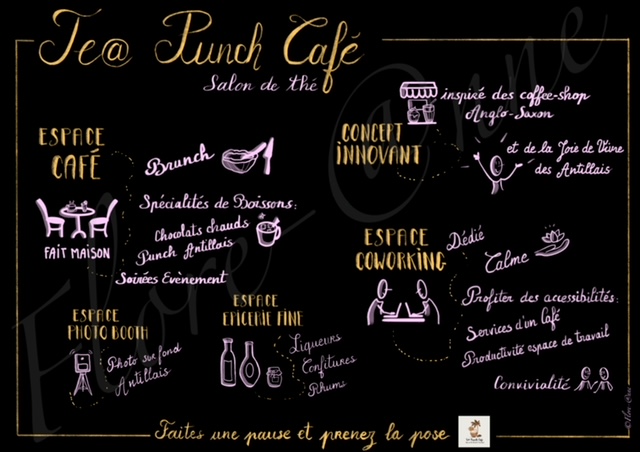 Te@ Punch Café
Salon de thé
ESPACE
CAFÉ
Brunch
Spécialités de Boissons:
Chocolats chauds
Punch Antillais
FAIT MAISON
Soirées Evènement
CONCEPT
INNOVANT
inspiré des coffee-shop
Anglo-Saxon
et de la Joie de Vivre
des Antillais
ESPACE
COWORKING
Dédié
Calme
Profiter des accessibilités:
Services d'un Café
Productivité espace de travail
Convivialité
ESPACE
PHOTO BOOTH
Photo sur fond
Antillais
ESPACE
EPICERIE FINE
Liqueurs
Confitures
Rhums
Faites une pause et prenez la pose